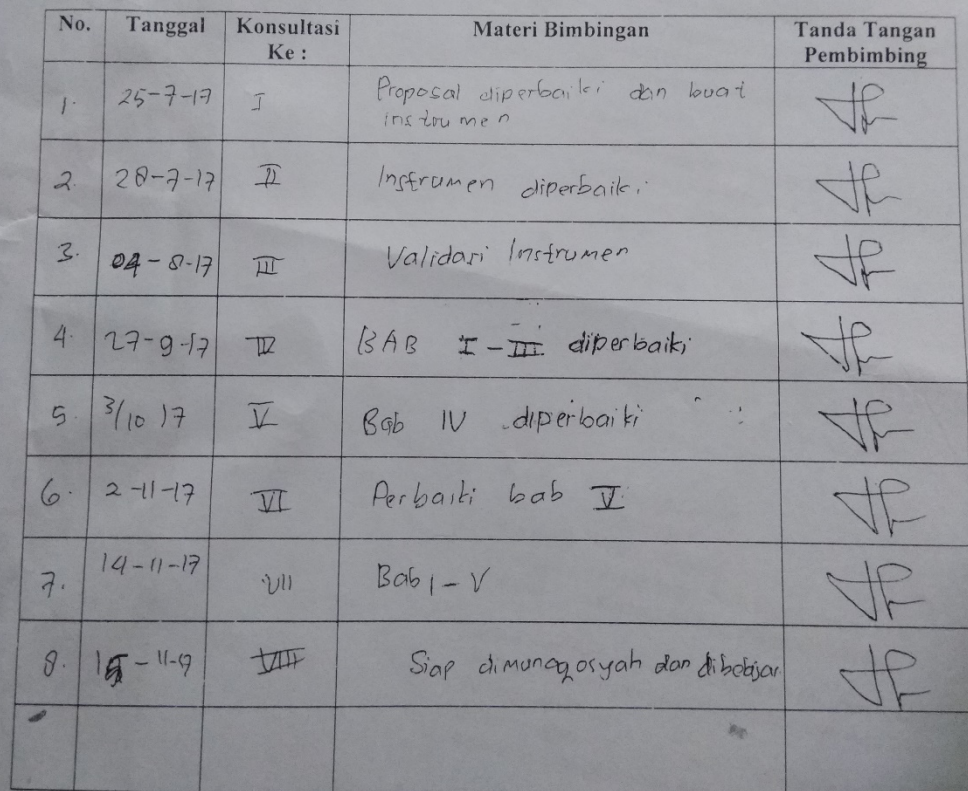 No. Tanggal Konsultasi Ke : Materi Bimbingan Tanda Tangan Pembimbing
1. 25-7-17 I Proposal diperbaiki dan buat
instrumen
2. 28-7-17 II Instrumen diperbaiki
3. 04-8-17 III Validasi Instrumen
4. 27-9-17 IV BAB I - III diperbaiki
5. 3/10 17 V Bab IV diperbaiki
6. 2-11-17 VI Perbaiki bab V
7. 14-11-17 VII Bab I - V
8. VIII Siap dimunaqosyah dan